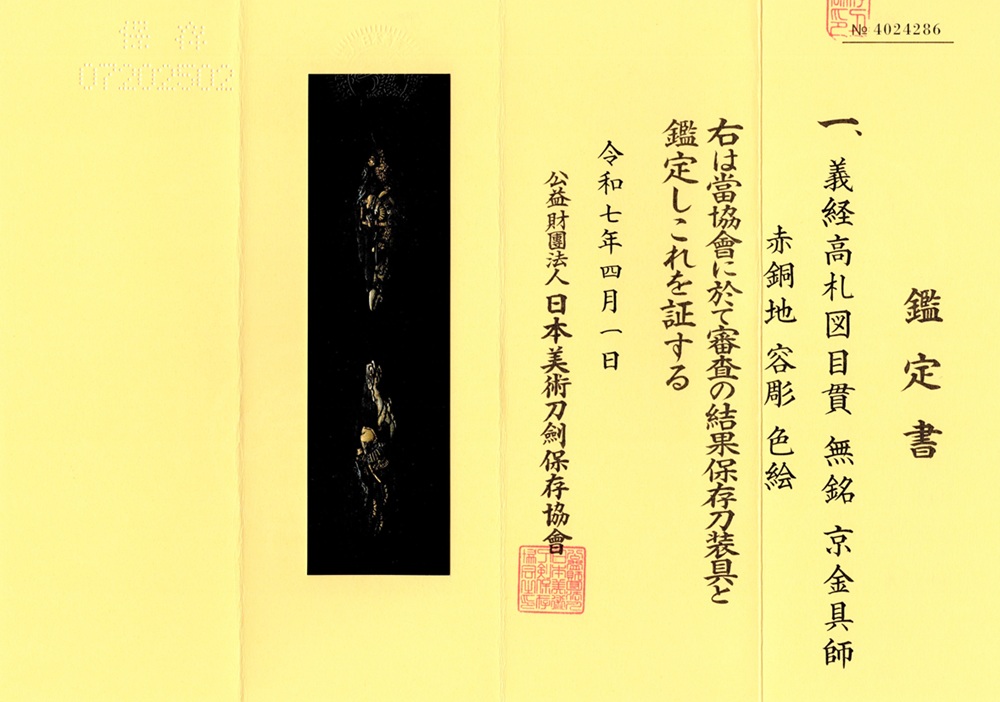 № 4024286
鑑定書
一、義経高札図目貫 無銘 京金具師
赤銅地 容彫 色絵
右は當協會に於て審査の結果保存刀装具と
鑑定しこれを証する
令和七年四月一日
公益財團法人 日本美術刀劍保存協會
保存
07202502